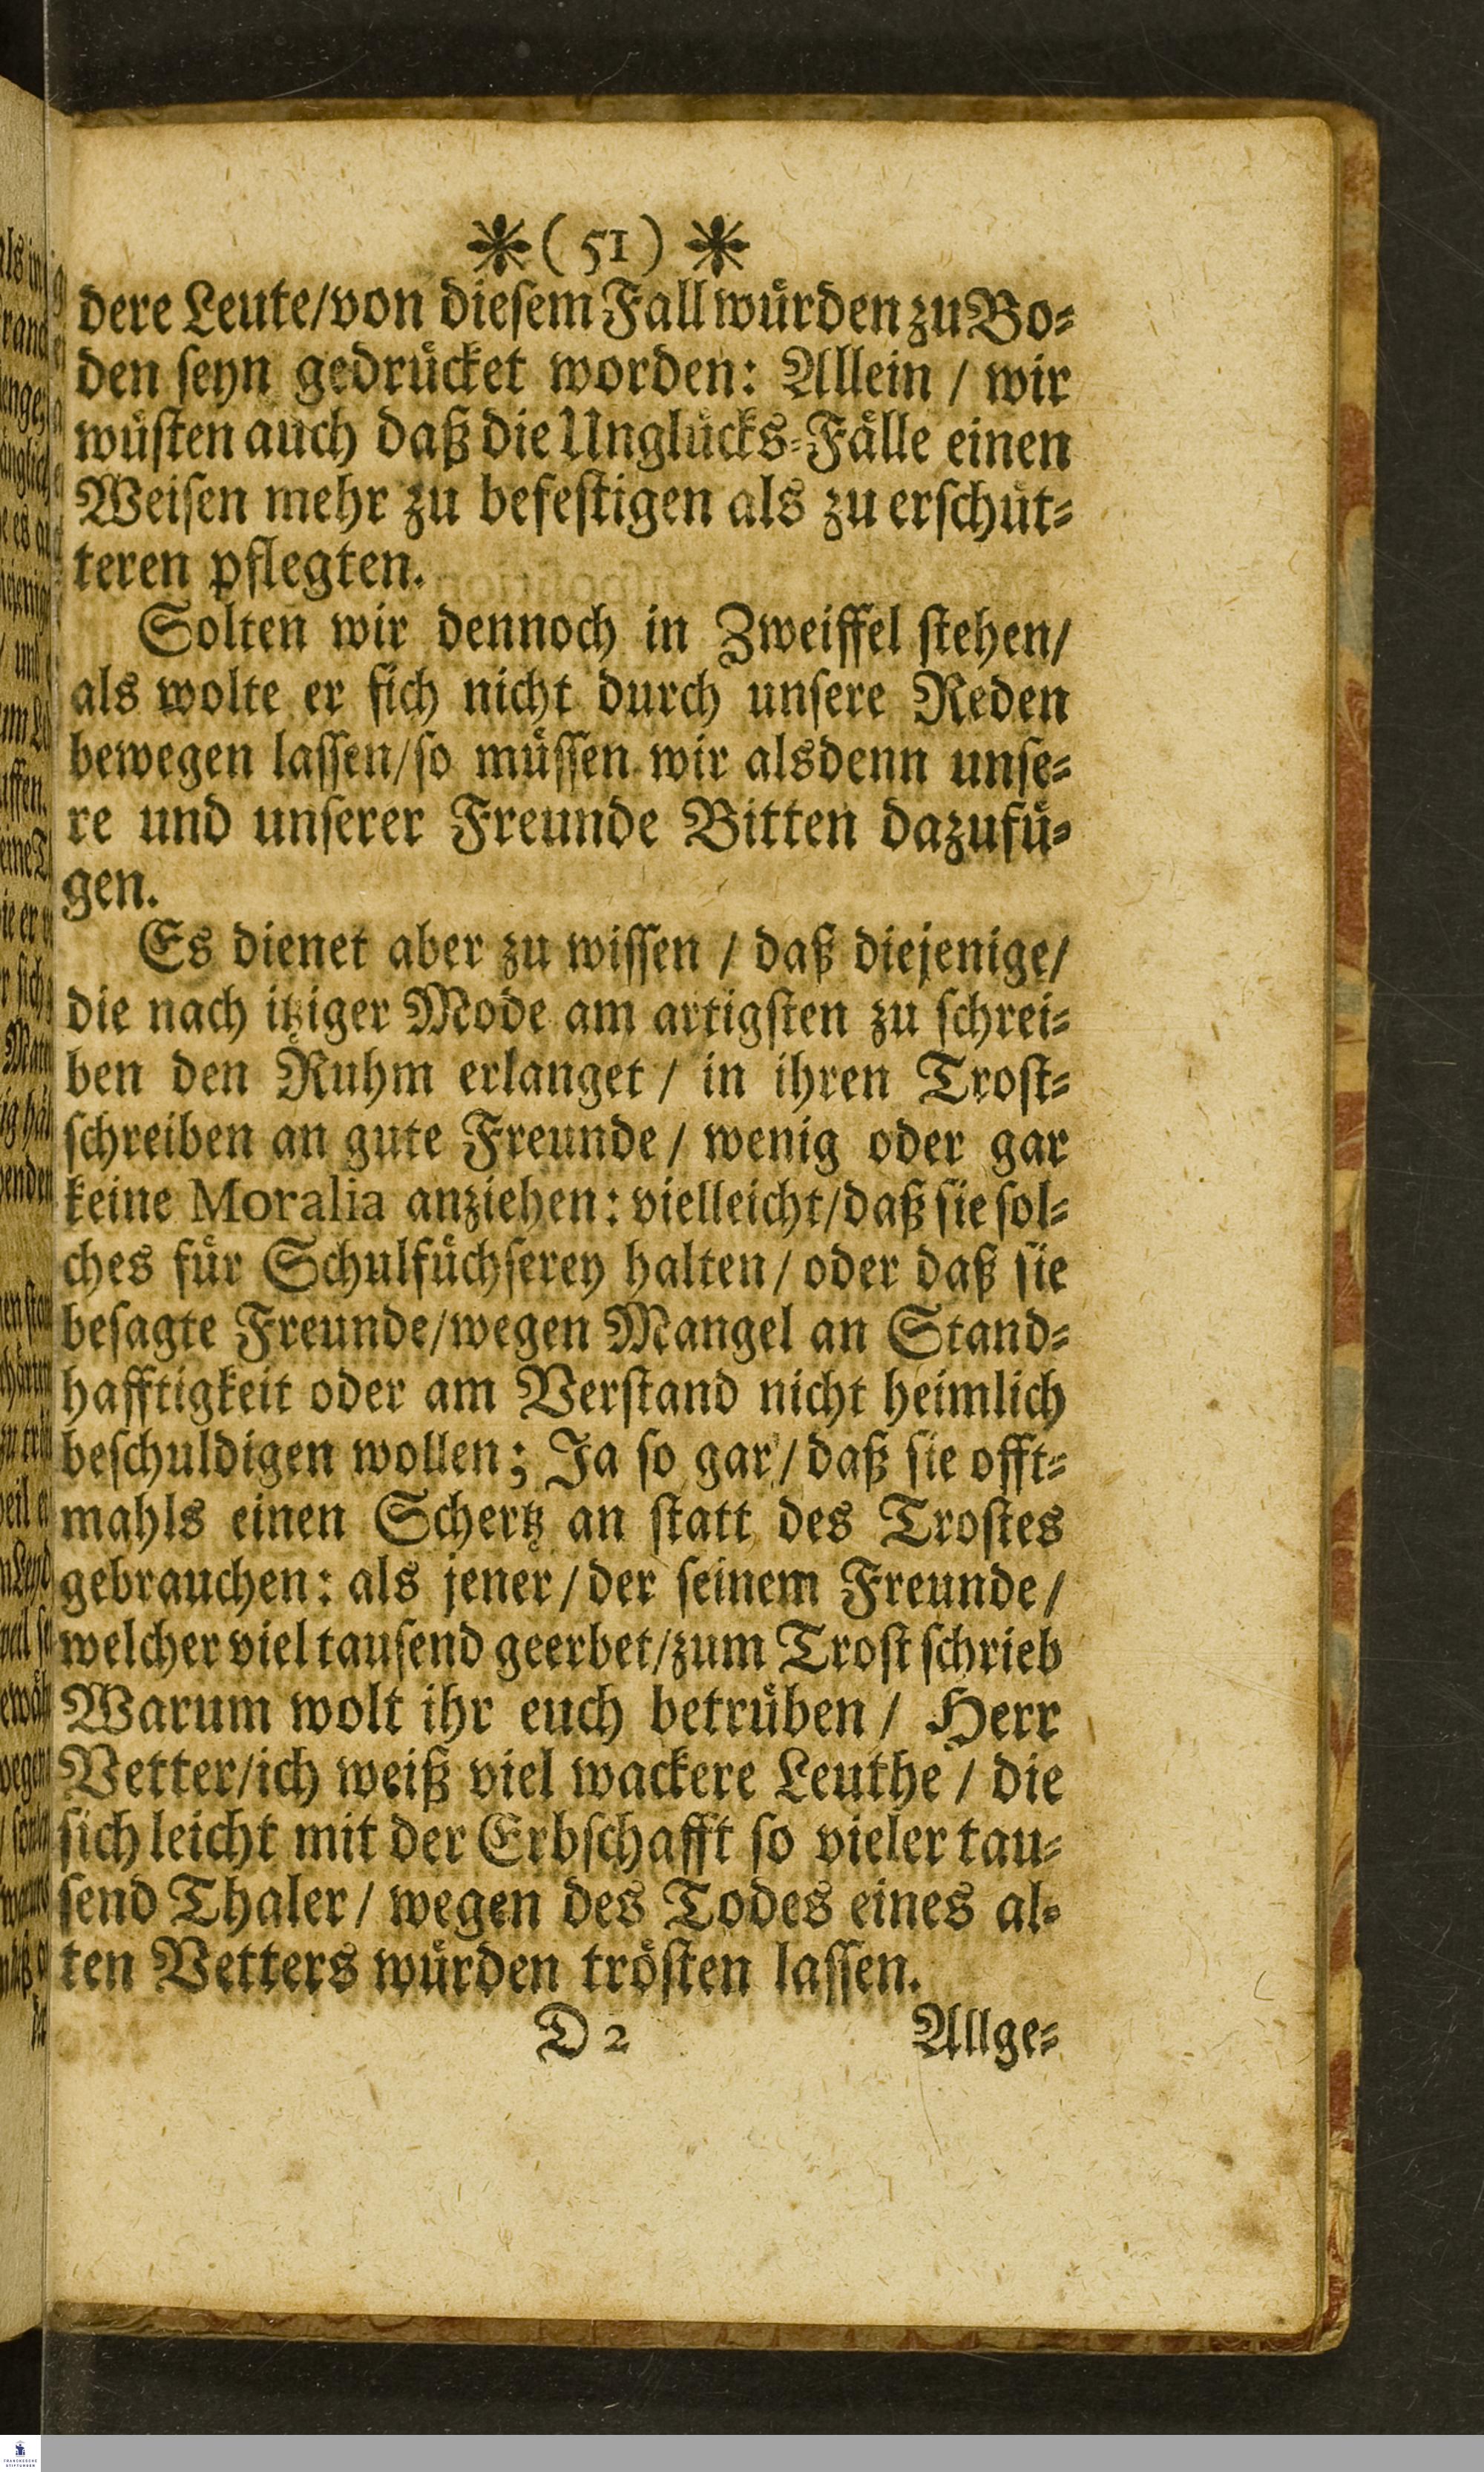 ✻ ( 51 ) ✻
dere Leute/von dieſem Fall wuͤrden zu Bo⸗
den ſeyn gedruͤcket worden: Allein / wir
wuͤſten auch daß die Ungluͤcks⸗Faͤlle einen
Weiſen mehr zu befeſtigen als zu erſchuͤt⸗
teren pflegten.
Solten wir dennoch in Zweiffel ſtehen/
als wolte er ſich nicht durch unſere Reden
bewegen laſſen/ſo muͤſſen wir alsdenn unſe⸗
re und unſerer Freunde Bitten dazufuͤ⸗
gen.
Es dienet aber zu wiſſen / daß diejenige/
die nach itziger Mode am artigſten zu ſchrei⸗
ben den Ruhm erlanget / in ihren Troſt⸗
ſchreiben an gute Freunde / wenig oder gar
keine Moralia anziehen: vielleicht/daß ſie ſol⸗
ches fuͤr Schulfuͤchſerey halten / oder daß ſie
beſagte Freunde/wegen Mangel an Stand⸗
hafftigkeit oder am Verſtand nicht heimlich
beſchuldigen wollen; Ja ſo gar / daß ſie offt⸗
mahls einen Schertz an ſtatt des Troſtes
gebrauchen: als jener / der ſeinem Freunde /
welcher viel tauſend geerbet/zum Troſt ſchrieb
Warum wolt ihr euch betruͤben / Herr
Vetter/ich weiß viel wackere Leuthe / die
ſich leicht mit der Erbſchafft ſo vieler tau⸗
ſend Thaler / wegen des Todes eines al⸗
ten Vetters wuͤrden troͤſten laſſen.
D 2 Allge⸗